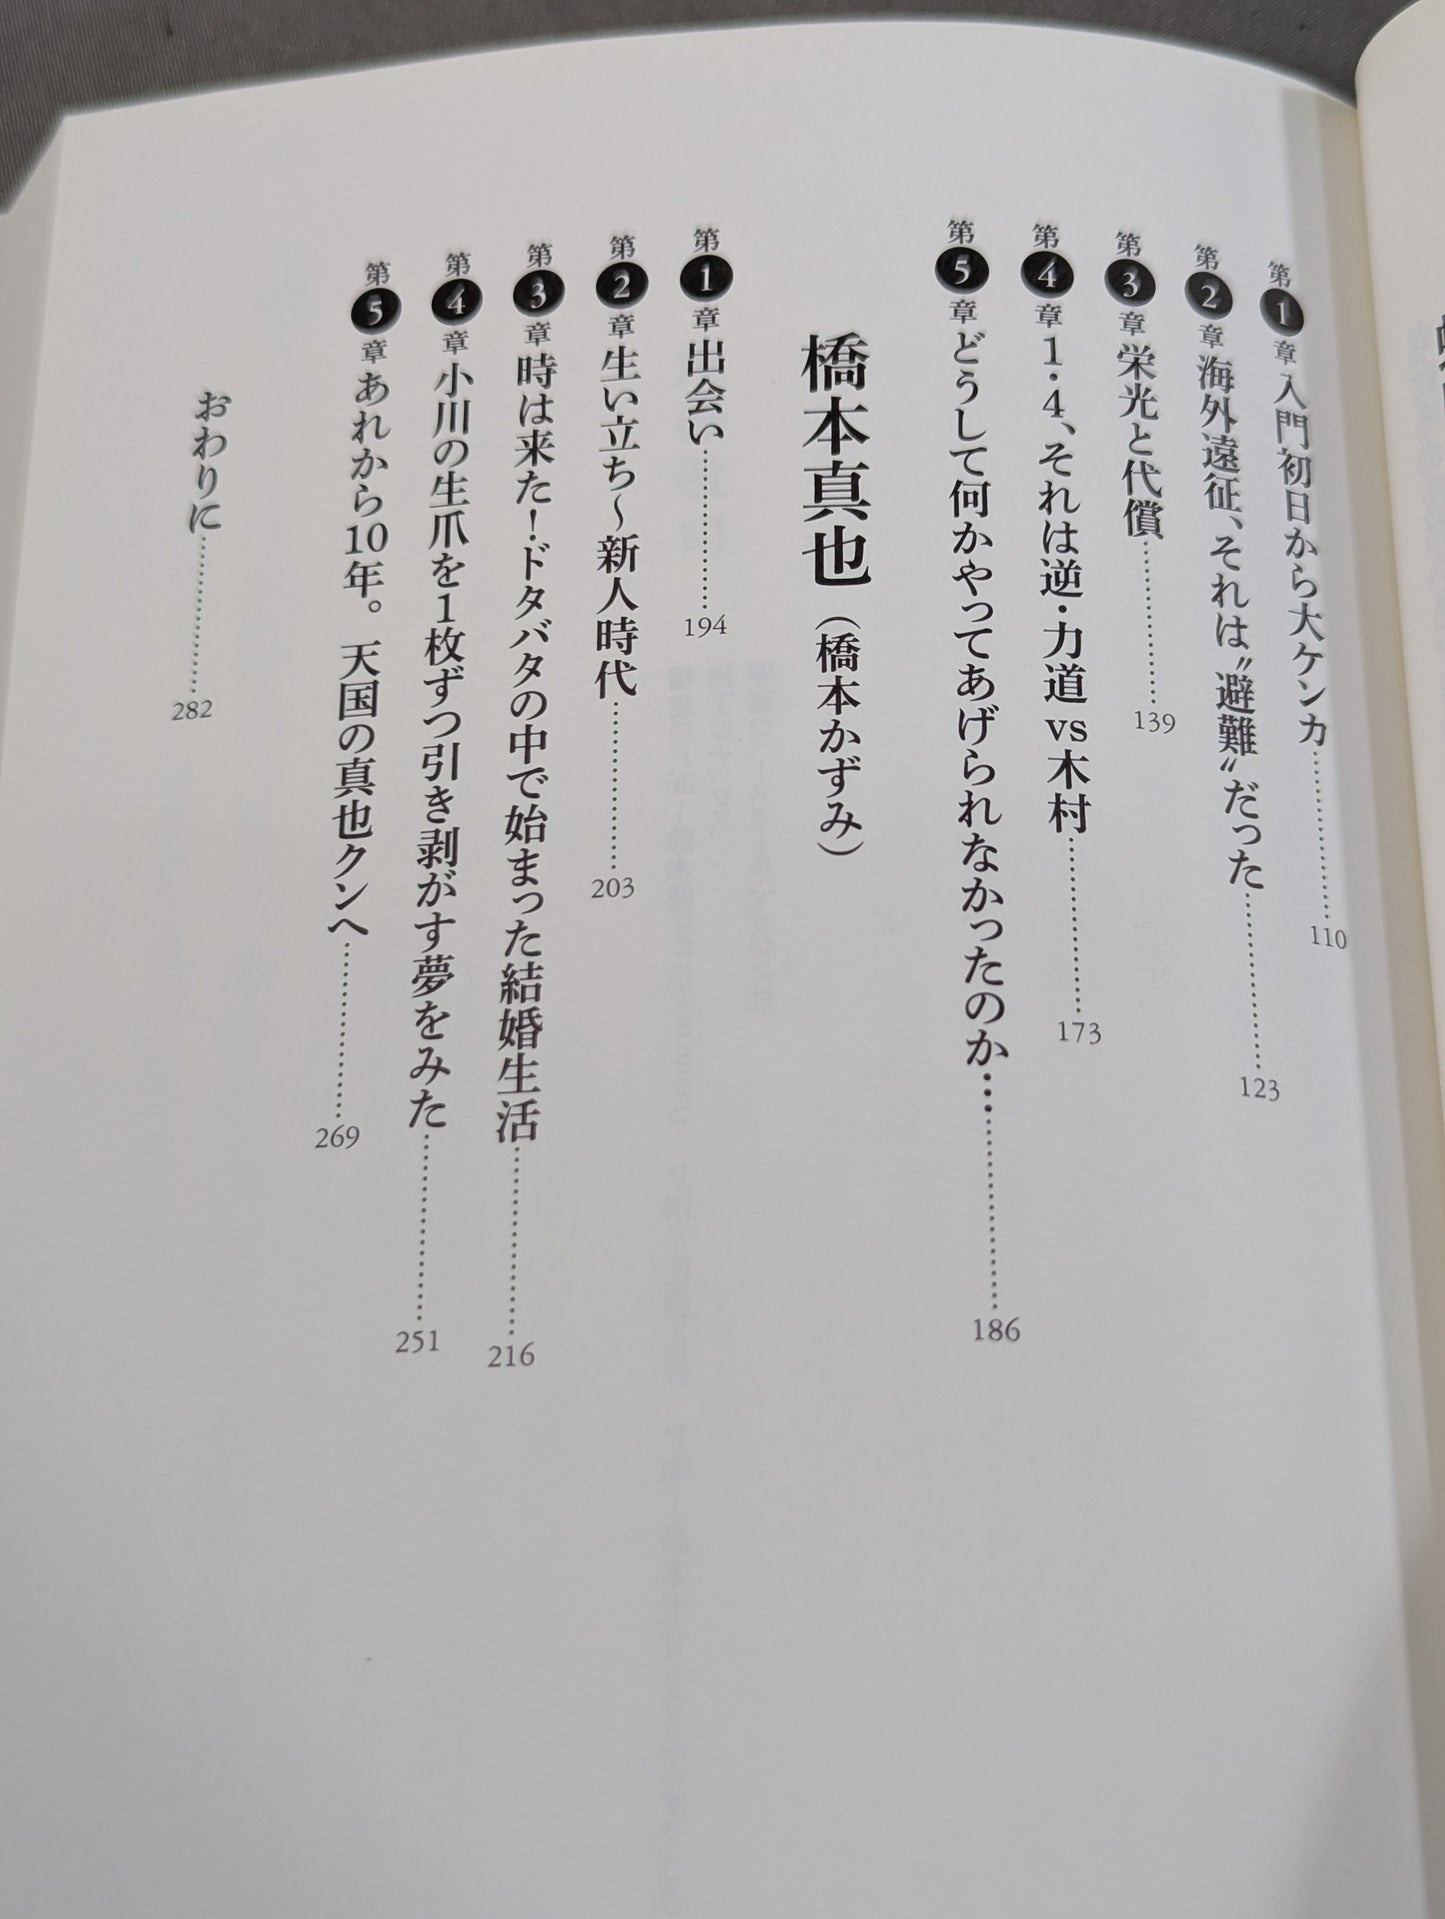 第1章 入門初日から大ケンカ…………110
第2章 海外遠征、それは〝避難〟だった…………123
第3章 栄光と代償…………139
第4章 1・4、それは逆・力道vs木村…………173
第5章 どうして何かやってあげられなかったのか…………186
橋本真也（橋本かずみ）
第1章 出会い…………194
第2章 生い立ち〜新人時代…………203
第3章 時は来た！ドタバタの中で始まった結婚生活…………216
第4章 小川の生爪を1枚ずつ引き剥がす夢をみた…………251
第5章 あれから10年。 天国の真也クンへ…………269
おわりに…………282